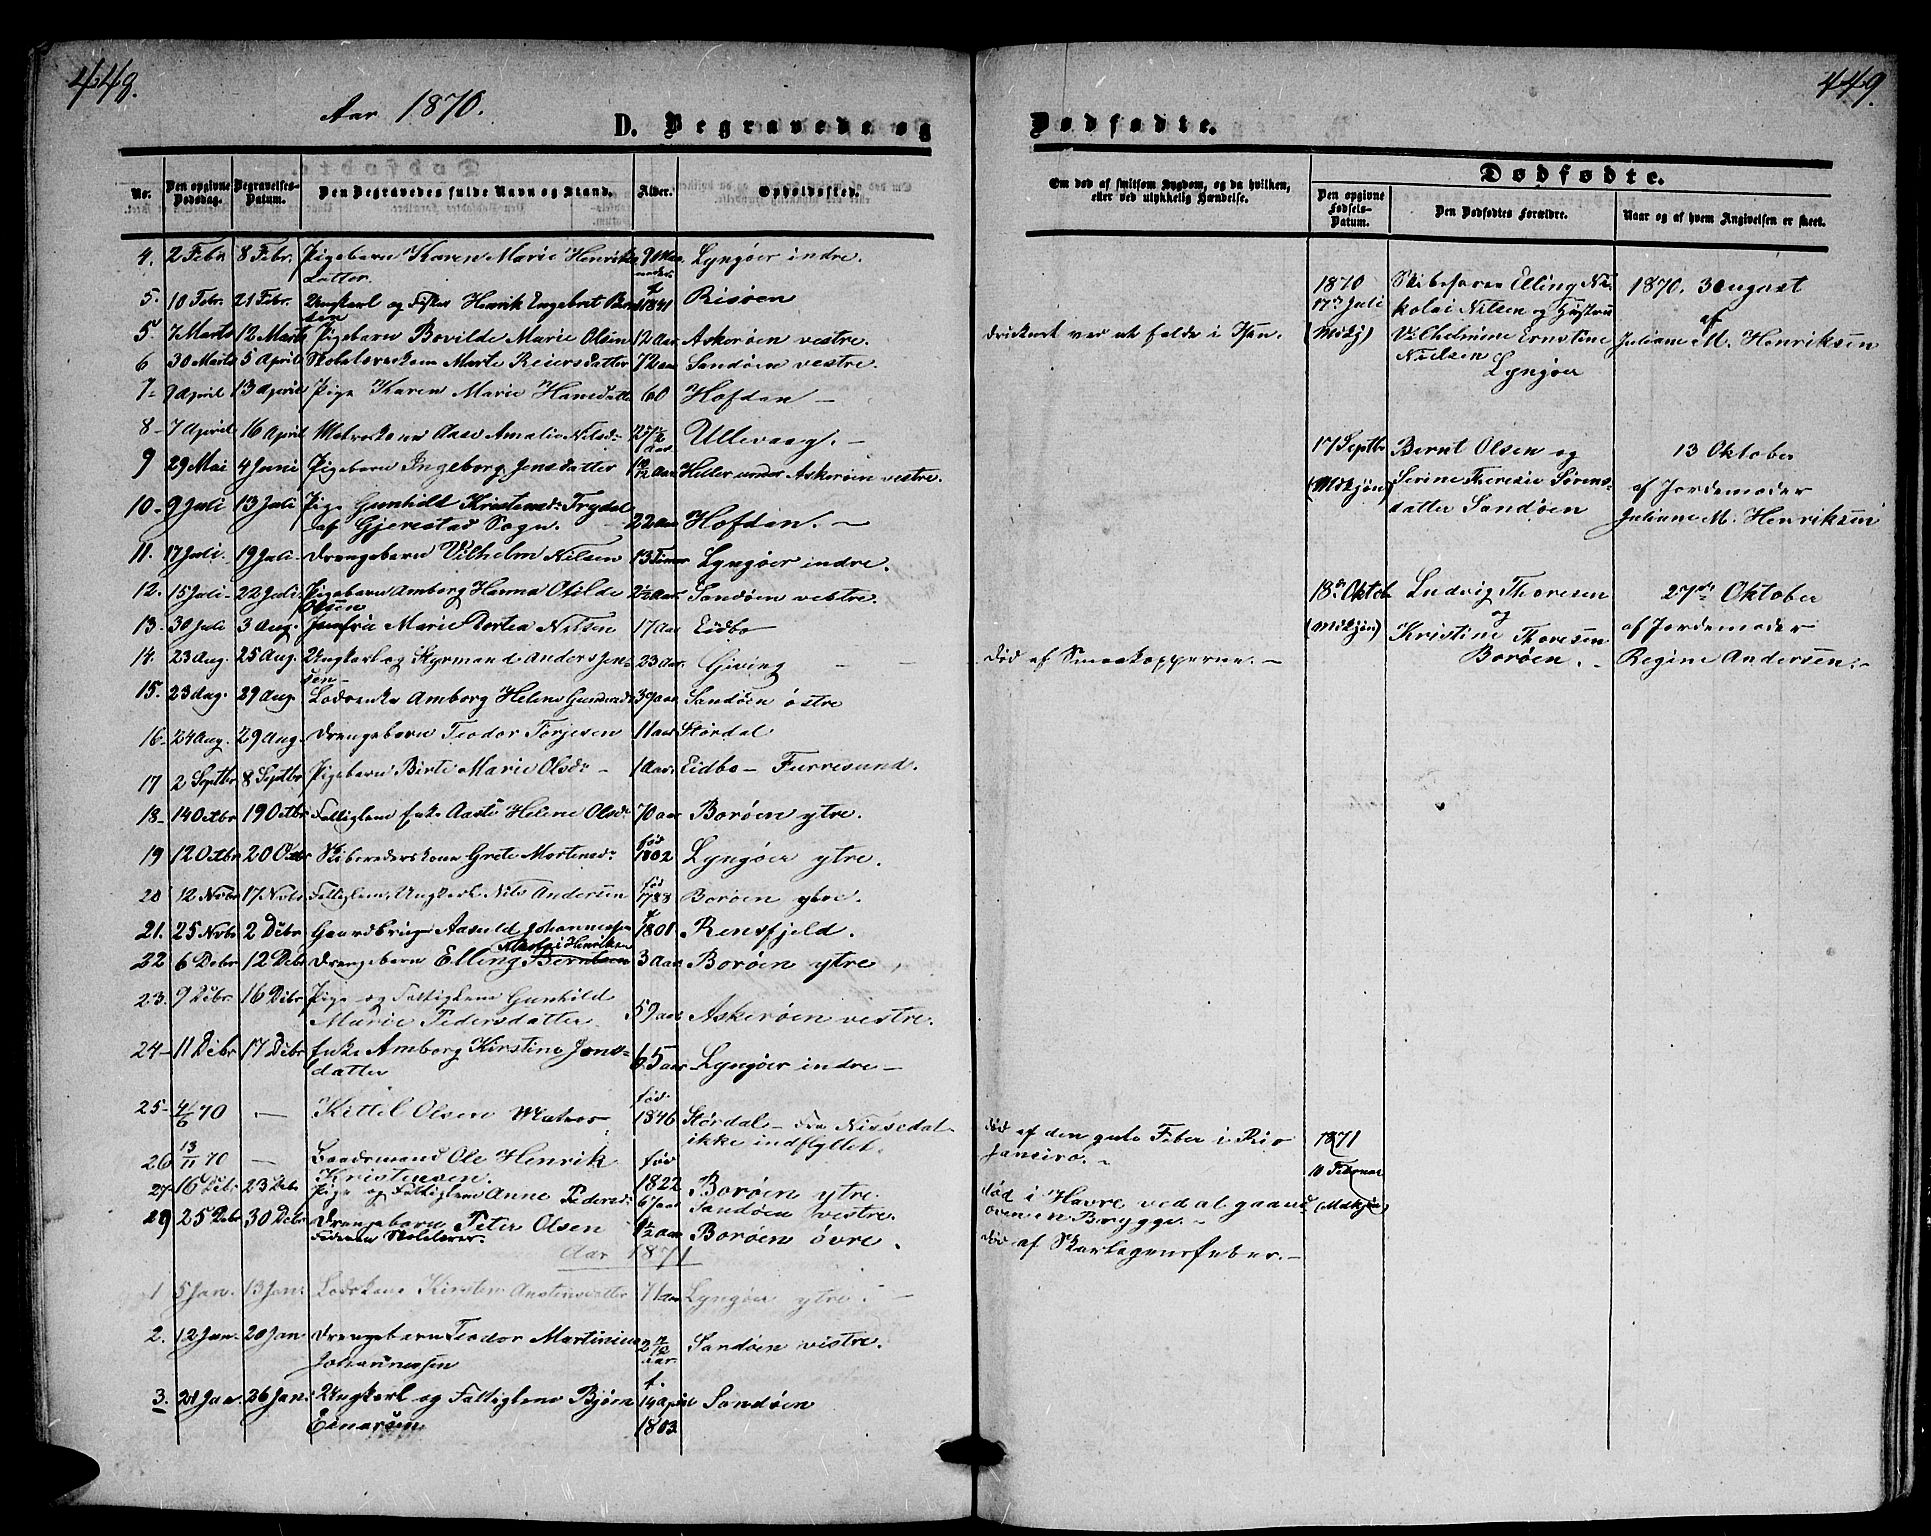 448.
Aar 1870.
D. Begravede og
No.
Den opgivne Dødsdag.
Begravelses-Datum.
Den Begravedes fulde Navn og Stand.
Alder.
Opholdssted.
4. 2 Febr 8 Febr. Pigebarn Karen Marie Henriks 9 Lyngøer indre.
datter
5. 10 Febr. 21 Febr. Ungkarl og Fisker Henrik Engebret f 1841 Risøen
5. 7 Marts 12 Marts Pigebarn Bovilde Marie Olsen 12 Aar Askerøen vestre.
6 30 Marts 5 April Marte Reiersdatter 72 aar Sandøen vestre.
7- 9 April 13 April Pige Karen Marie Hansdatter 60 Hofdan —
8- 7 April 16 April Aase Amalie Nilsd: Ullevaag. —
9 29 Mai 4 Juni Pigebarn Ingeborg Jensdatter Aar Heller under Askerøen vestre.
10- 9 Juli 13 Juli Pige Gunhild Kristensd: Trydal
af Gjerestad Sogn. — 22 aar Hofdan. —
11. 17 Juli. 19 Juli. Drengebarn Vilhelm Nilsen 13 Timer Lyngøer indre.
12. 15 Juli- 22 Juli. Pigebarn Amborg Hanna Otilde 2½ Aar. Sandøen vestre.
Olsen
13. 30 Juli 3 Aug. Jomfru Marie Dortea Nilsen 17 Aar Eidbo
14. 23 Aug. 25 Aug. Ungkarl og Styrmand Anders Jen- 23 Aar. Giving — —
sen-
15. 23 Aug. 29 Aug. Lodsenke Amborg Helene 39 aar Sandøen östre
16- 24 Aug. 29 Aug. Drengebarn Teodor Torjesen 11 aar Stórdal
17 2 Septbr 8 Septbr Pigebarn Birte Marie Olsd: — 1 Aar. Eidbo — Furresund.
18- 14 Octbr 19 Octbr Fattiglem Enke Aaste Helene Olsd: 70 aar Borøen ytre.
19 12 Octbr 20 Octbr Skibsrederskone Grete Mortensd: fød 1802 Lyngøer ytre.
20 12 Novbr 17 Novbr Fattiglem, Ungkarl Nils Andersen fød 1788 Borøen ytre.
21. 25 Novbr 2 Debr Gaardbruger Aasuld Johannessen f 1801 Rensfjeld.
22 6 Debr 12 Debr Drengebarn Elling Berntsen Henriksen 3 Aar Borøen ytre
23. 9 Debr. 16 Debr Pige og Fattiglem Gunhild
Marie Pedersdatter. 59 aar Askerøen vestre.
24- 11 Debr 17 Debr Enke Amborg Kirstine Jens-
datter 65 aar Lyngøer indre —
25- 4/6 70 — Kittel Olsen Matros fød 1846 Stórdal — Fra Nissedal
ikke indflyttet.
26 13/11 70 — Baadsmand Ole Henrik
Kristensen. fød 1822 Borøen ytre.
27- 16 Debr 23 Debr Pige og Fattiglem Anne Pedersd: Sandøen vestre.
29 25 Debr 30 Debr Drengebarn Peter Olsen Aar Borøen övre.
Faderen Skolelærer.
Aar 1871
1 5 Jan. 13 Jan. Lodskone Kirsten Austensdatter 71 aar Lyngøer ytre. —
2. 12 Jan. 20 Jan Drengebarn Teodor Martinius aar. Sandøen vestre.
Johannessen
3. 21 Jan. 26 Jan. Ungkarl og Fattiglem Bjørn f. 14 April 1803 Sandøen
Einarsen
449.
Dødfødte.
Om død af smitsom Sygdom, og da hvilken,
eller ved ulykkelig Hændelse.
Dødfødte.
Den opgivne Fødsels-Datum.
Den Dødfødtes Forældre.
Naar og af hvem Angivelsen er skeet.
druknet ved at falde i Isen.
Død af Smaakopperne. —
død af den gule Feber i Rio
Janeiro. —
død i Havre ved at gaa ud
over en Brygge. —
død af Skarlagensfeber. —
1870 Skibsfører Elling Ni- 1870. 3 August
17de Juli kolai Nilsen og Hustru af
(Mdkj) Vilhelmine Ernstine Juliane M. Henriksen
Nielsen
Lyngøer
17 Septbr Bernt Olsen og 13 Oktober
(Mdkjön) Serine Theresie Sörens- af Jordemoder
datter Sandøen Juliane M. Henriksen
18de Oktob Ludvig Thoresen 27de Oktober
og
(Mdkjön) Kristine Thoresen af Jordemoder
Borøen. — Regine Andersen. —
1871
10 Februar
(Mdkjön)